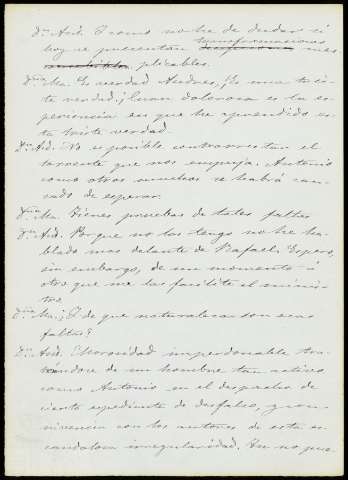 Dn And. Y como no he de dudar si
hoy se presentan transformaciones mas
plicables.
Dña Ma. Es verdad Andres, ¡Es una tris-
te verdad. ¡Cuan dolorosa es la es-
periencia en que he aprendido es-
ta triste verdad.
Dn Ad. No es posible contrarrestar el
torrente que nos empuja. Antonio
como otros muchos se habrá can-
sado de esperar.
Dña Ma. Tienes pruebas de tales faltas
Dn And. Porque no las tengo no he ha-
blado mas delante de Rafael. Espero,
sin embargo, de un momento á
otro que me las facilite el minis-
tro.
Dña Ma. ¿Y de que naturaleza son esas
faltas?
Dn And. Morosidad imperdonable tra-
tandose de un hombre tan activo
como Antonio en el despacho de
cierto espediente de desfalco, y con-
nivencia con los autores de esta es-
candalosa irregularidad. Yo no pue-